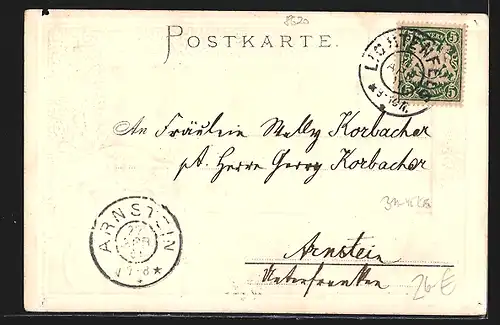 8520
POSTKARTE.
BAYERN
5 5
LICHTENFELS
An Fräulein Nelly Korbacher
p. A. Herrn Georg Korbacher
ARNSTEIN
22
APR
7-8
Arnstein
Unterfranken
26 €